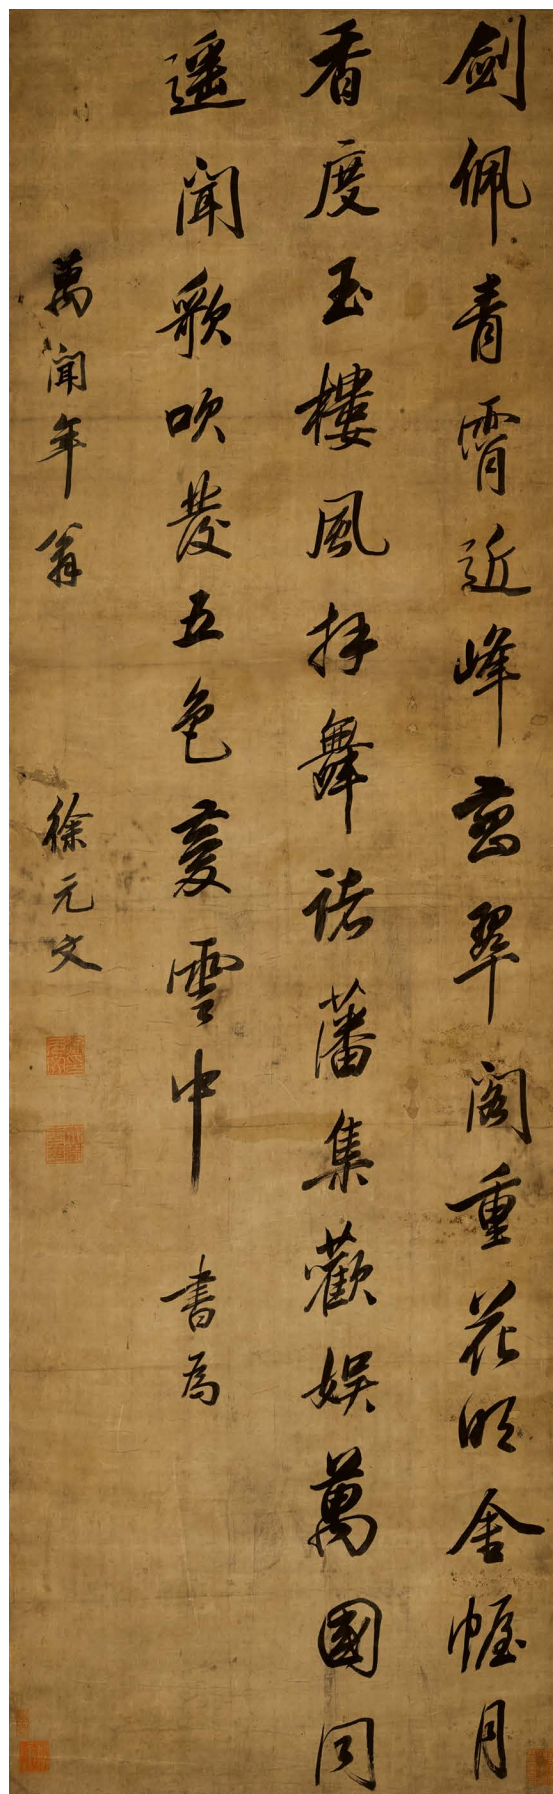 劍佩青霄近峰巒翠閣重花明金幄月
香度玉樓風拜舞諸藩集歡娛萬國同
遥聞歌吹發五色慶雲中 書為
萬聞年翁 徐元文